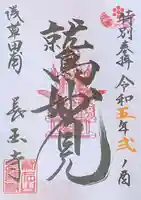 特別参拝
令和五年弐ノ酉
鷲妙見
浅草田圃
長國寺